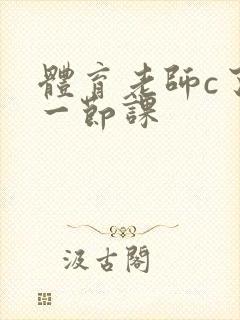 體育老師c了
一節課
汲古閣